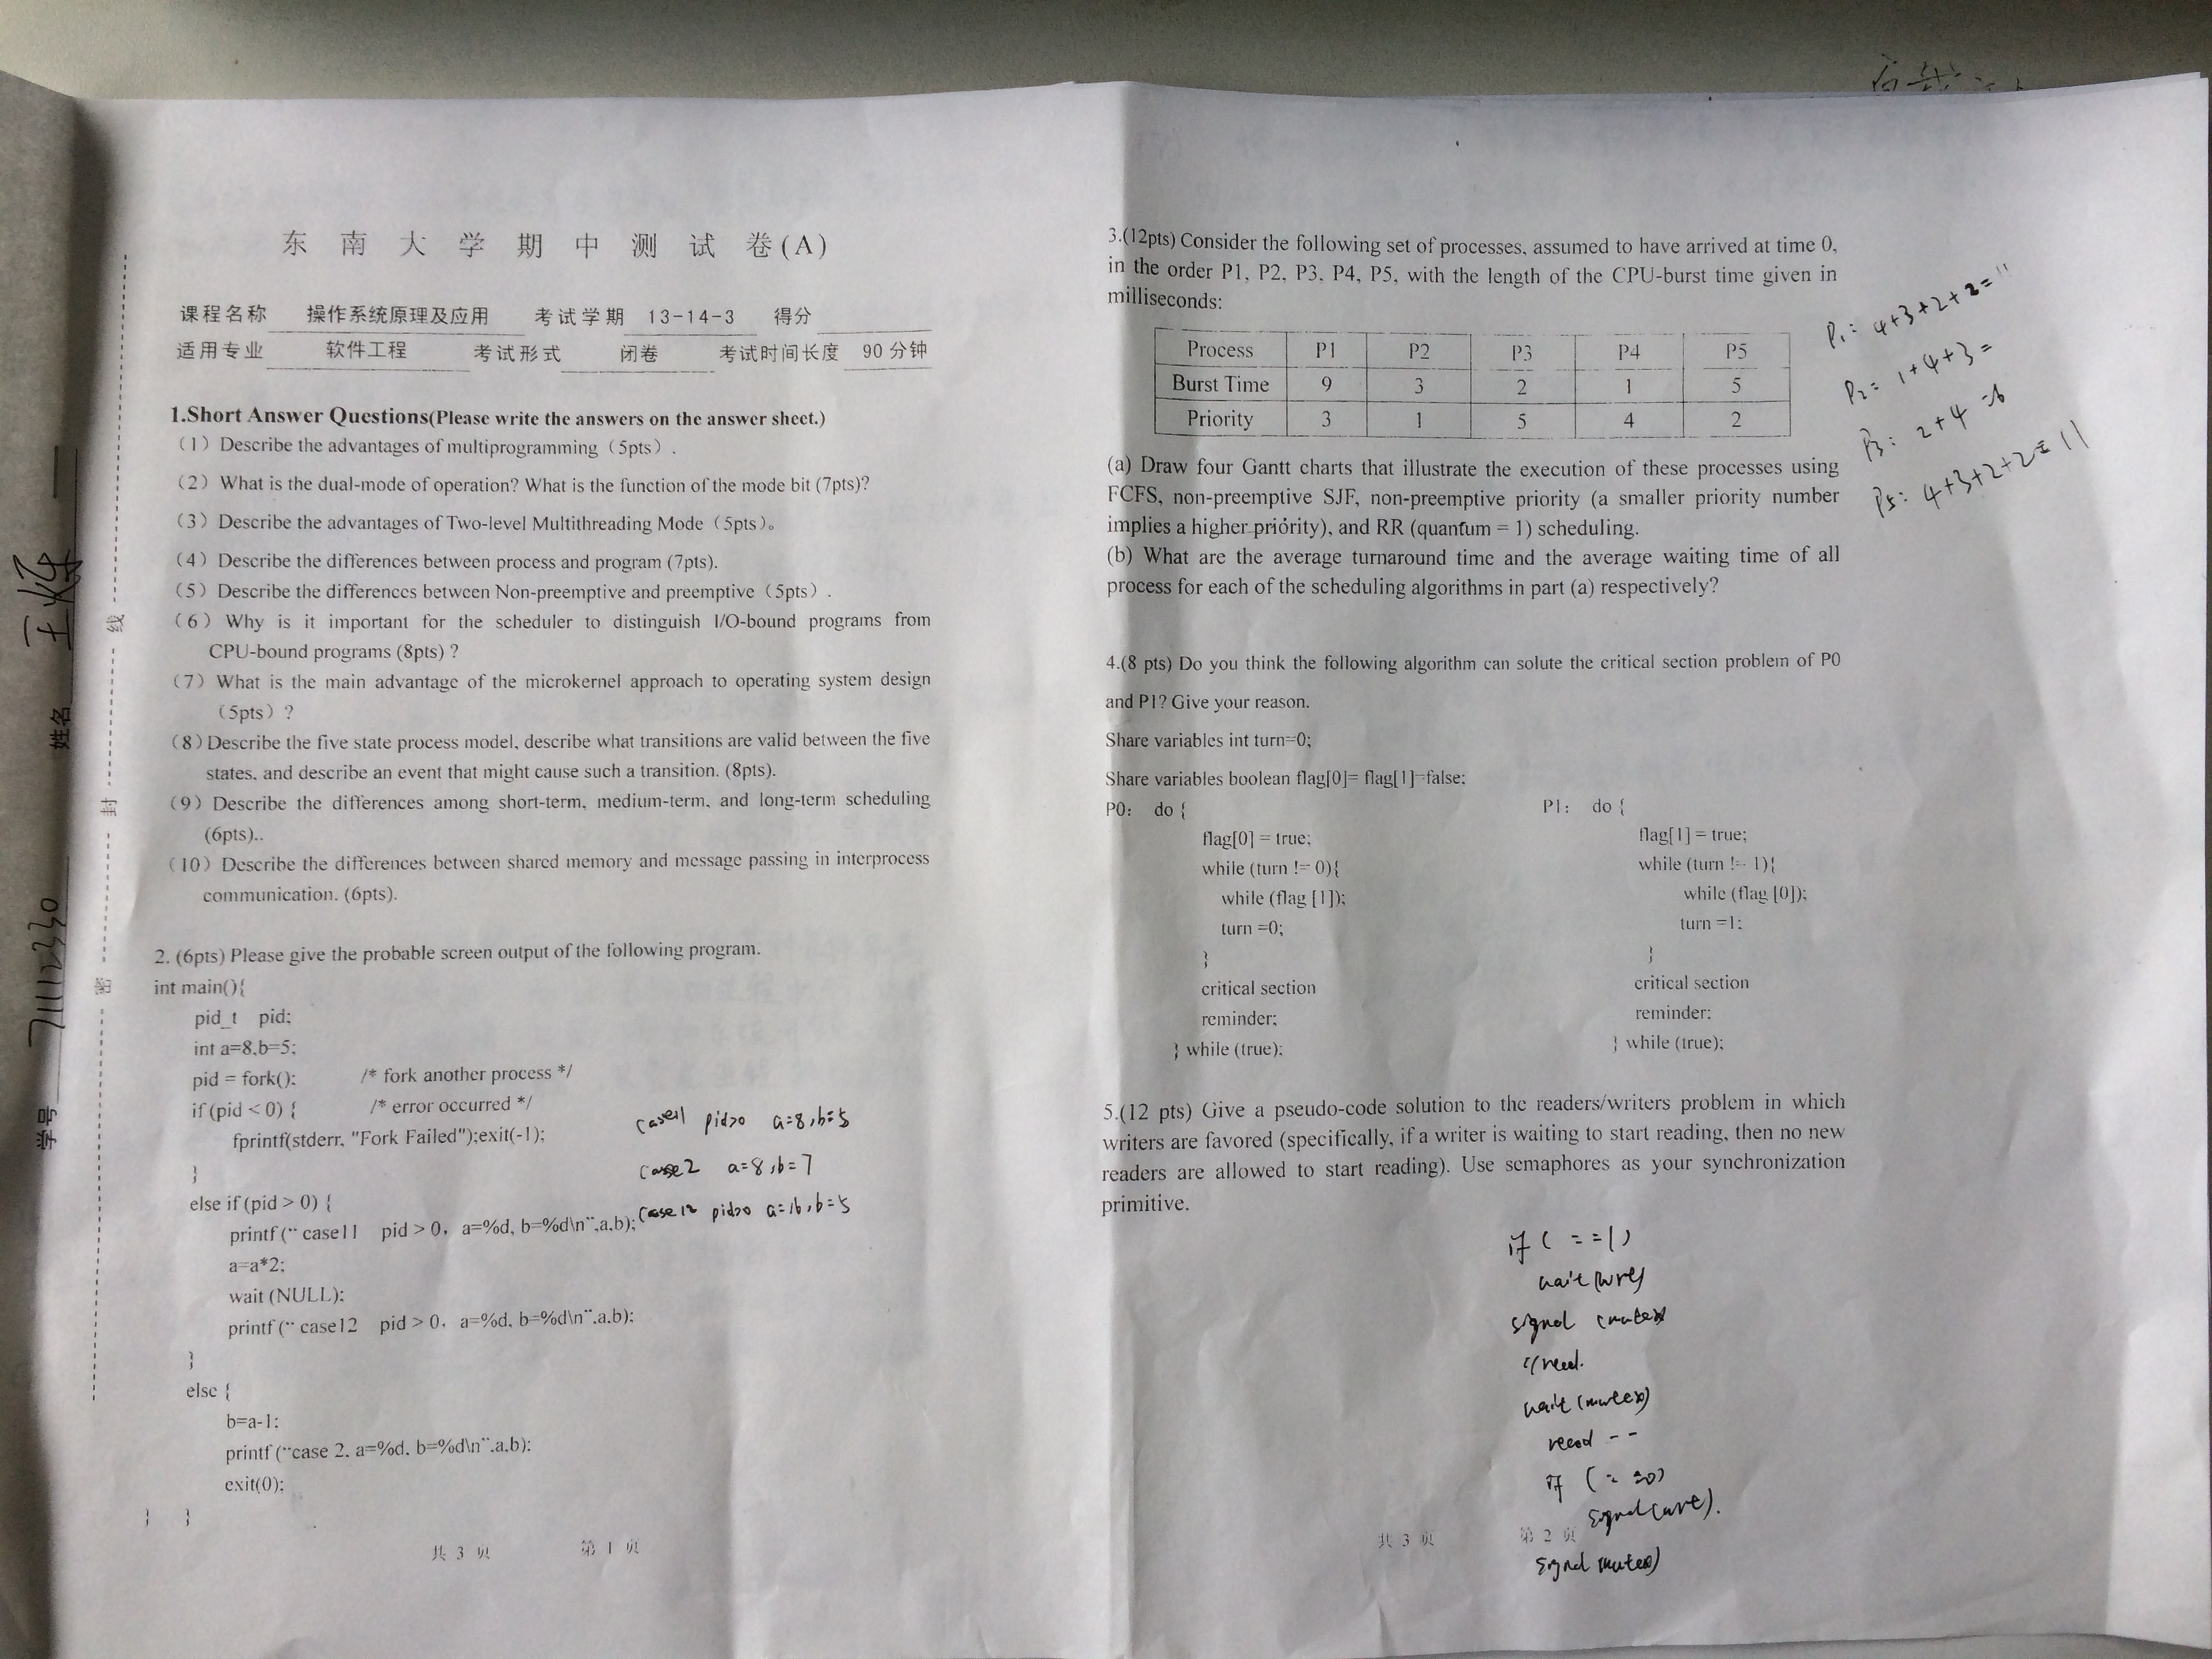 东 南 大 学 期 中 测 试 卷(A)
课程名称 操作系统原理及应用 考试学期 13-14-3 得分
适用专业 软件工程 考试形式 闭卷 考试时间长度 90分钟
1.Short Answer Questions(Please write the answers on the answer sheet.)
(1) Describe the advantages of multiprogramming (5pts).
(2) What is the dual-mode of operation? What is the function of the mode bit (7pts)?
(3) Describe the advantages of Two-level Multithreading Mode (5pts)。
(4) Describe the differences between process and program (7pts).
(5) Describe the differences between Non-preemptive and preemptive (5pts).
(6) Why is it important for the scheduler to distinguish I/O-bound programs from
CPU-bound programs (8pts)?
(7) What is the main advantage of the microkernel approach to operating system design
(5pts)?
(8) Describe the five state process model, describe what transitions are valid between the five
states, and describe an event that might cause such a transition. (8pts).
(9) Describe the differences among short-term, medium-term, and long-term scheduling
(6pts)..
(10) Describe the differences between shared memory and message passing in interprocess
communication. (6pts).
2. (6pts) Please give the probable screen output of the following program.
int main(){
pid_t pid;
int a=8,b=5;
pid = fork(); /* fork another process */
if (pid < 0) { /* error occurred */
fprintf(stderr, "Fork Failed");exit(-1);
}
else if (pid > 0) {
printf (" case11 pid > 0, a=%d, b=%d\n",a,b);
a=a*2;
wait (NULL);
printf (" case12 pid > 0, a=%d, b=%d\n",a,b);
}
else {
b=a-1;
printf ("case 2, a=%d, b=%d\n",a,b);
exit(0);
} }
case11 pid>0 a=8,b=5
case2 a=8,b=7
case12 pid>0 a=16,b=5
共 3 页 第 1 页
3.(12pts) Consider the following set of processes, assumed to have arrived at time 0,
in the order P1, P2, P3, P4, P5, with the length of the CPU-burst time given in
milliseconds:
Process P1 P2 P3 P4 P5
Burst Time 9 3 2 1 5
Priority 3 1 5 4 2
P1: 4+3+2+2=11
P2: 1+4+3=
P3: 2+4 =6
P5: 4+3+2+2=11
(a) Draw four Gantt charts that illustrate the execution of these processes using
FCFS, non-preemptive SJF, non-preemptive priority (a smaller priority number
implies a higher priority), and RR (quantum = 1) scheduling.
(b) What are the average turnaround time and the average waiting time of all
process for each of the scheduling algorithms in part (a) respectively?
4.(8 pts) Do you think the following algorithm can solute the critical section problem of P0
and P1? Give your reason.
Share variables int turn=0;
Share variables boolean flag[0]= flag[1]=false;
P0: do { P1: do {
flag[0] = true; flag[1] = true;
while (turn != 0){ while (turn != 1){
while (flag [1]); while (flag [0]);
turn =0; turn =1;
} }
critical section critical section
reminder; reminder;
} while (true); } while (true);
5.(12 pts) Give a pseudo-code solution to the readers/writers problem in which
writers are favored (specifically, if a writer is waiting to start reading, then no new
readers are allowed to start reading). Use semaphores as your synchronization
primitive.
if ( ==1)
wait (wrt)
signal (mutex)
//read.
wait (mutex)
read --
if ( ==0)
signal (wrt).
signal (mutex)
共 3 页 第 2 页
学号 71112330 姓名
密 封 线